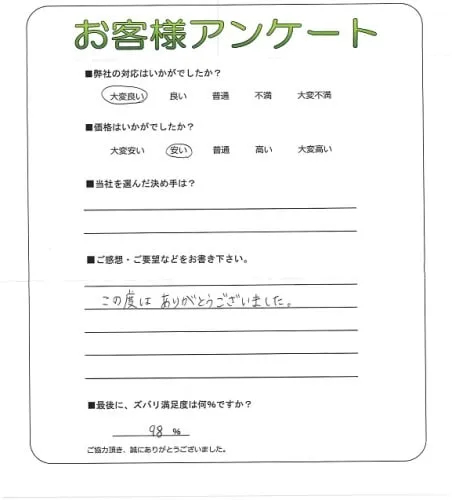 お客様アンケート
■弊社の対応はいかがでしたか？
大変良い 良い 普通 不満 大変不満
■価格はいかがでしたか？
大変安い 安い 普通 高い 大変高い
■当社を選んだ決め手は？
■ご感想・ご要望などをお書き下さい。
この度は ありがとうございました。
■最後に、ズバリ満足度は何%ですか？
98 %
ご協力頂き、誠にありがとうございました。